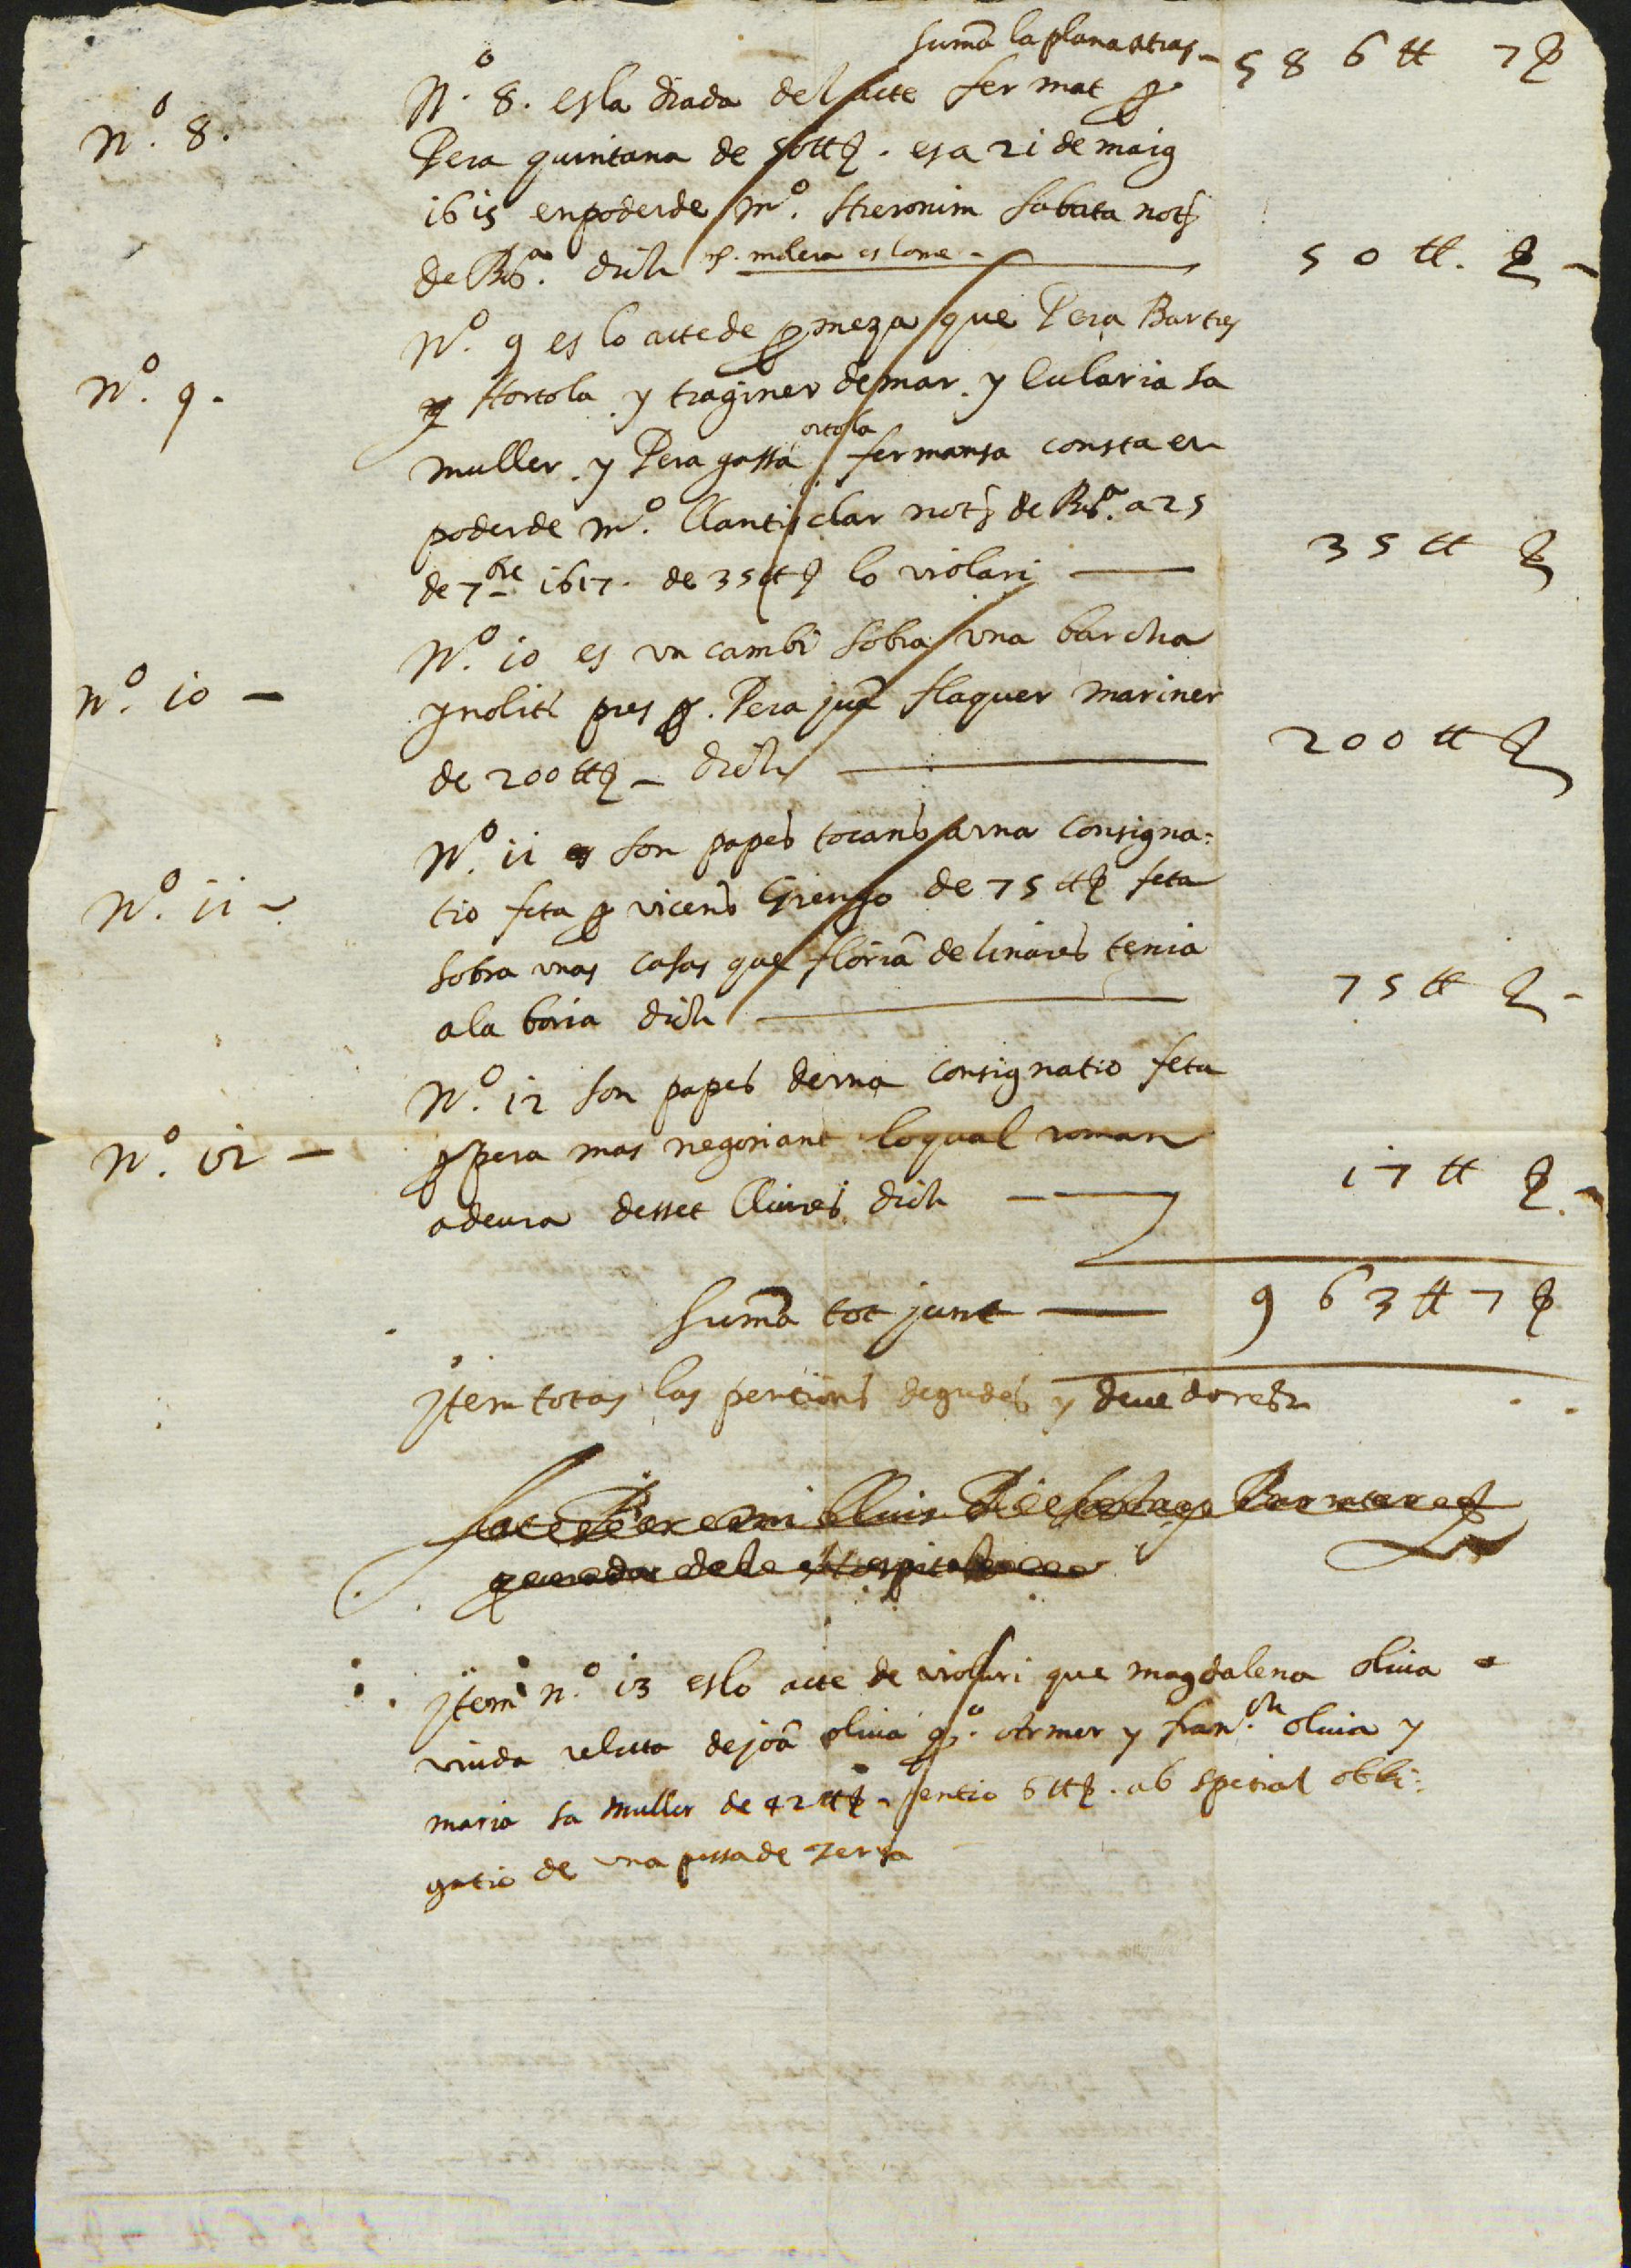 suma la plana atras - 586 ₶ 7 ß
Nº. 8.
Nº. 8. es la diada del acte fermat p
Pera quintana de 50 ₶ ß. es a 21 de maig
1615 en poder de mº. Hieronim Sabata notj
de Bªʳ. dich nº. molera es lome - 50 ₶. ß -
Nº. 9.
Nº. 9 es lo acte de pmeza que Pera Bartes
Hortola y traginer de mar. y Eularia sa
ortola
muller. y Pera gassa fermansa consta en
poder de mº. Llanti clar notj de Bªʳ. a 25
de 7bre 1617. de 35 ₶ ß lo violari — 35 ₶ ß
Nº. 10 -
Nº. 10 es vn cambi sobra vna barcha
y nolits pres p. Pera juã flaquer mariner
de 200 ₶ ß - dich — 200 ₶ ß
Nº. 11 -
Nº. 11 son papes tocans a vna consigna:
tio feta p vicens de 75 ₶ ß feta
sobra vnas casas que floriã de linares tenia
a la boria dich — 75 ₶ ß -
Nº. 12 -
Nº. 12 son papes de vna consignatio feta
p pera mas negosiant lo qual roman
a deura desset lliures dich — 17 ₶ ß -
suma tot junt — 963 ₶ 7 ß
jtem totas las pentions degudes y deuedores
lluis
Hospital
jtem nº. 13 es lo acte de violari que magdalena oliua
viuda relicta de joã oliua qº. y franch oliua y
maria sa muller de 42 ₶ ß - pentio 6 ₶ ß. ab spetial obli:
gatio de vna pessa de terra